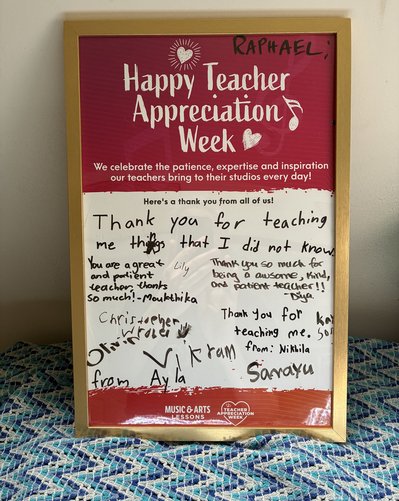 RAPHAEL;
Happy Teacher
Appreciation
Week
We celebrate the patience, expertise and inspiration
our teachers bring to their studios every day!
Here's a thank you from all of us!
Thank you for teaching
me things that I did not know
You are a great
and patient
teacher, thanks
so much! - Moukthika
Lily
Thank you so much for
being a awsome, kind,
and patient teacher!!
- Diya
Christopher
Thank you for
teaching me,
from: Nikhila
Vikram
from Ayla
Sanayu
MUSIC & ARTS
LESSONS
TEACHER
APPRECIATION
WEEK